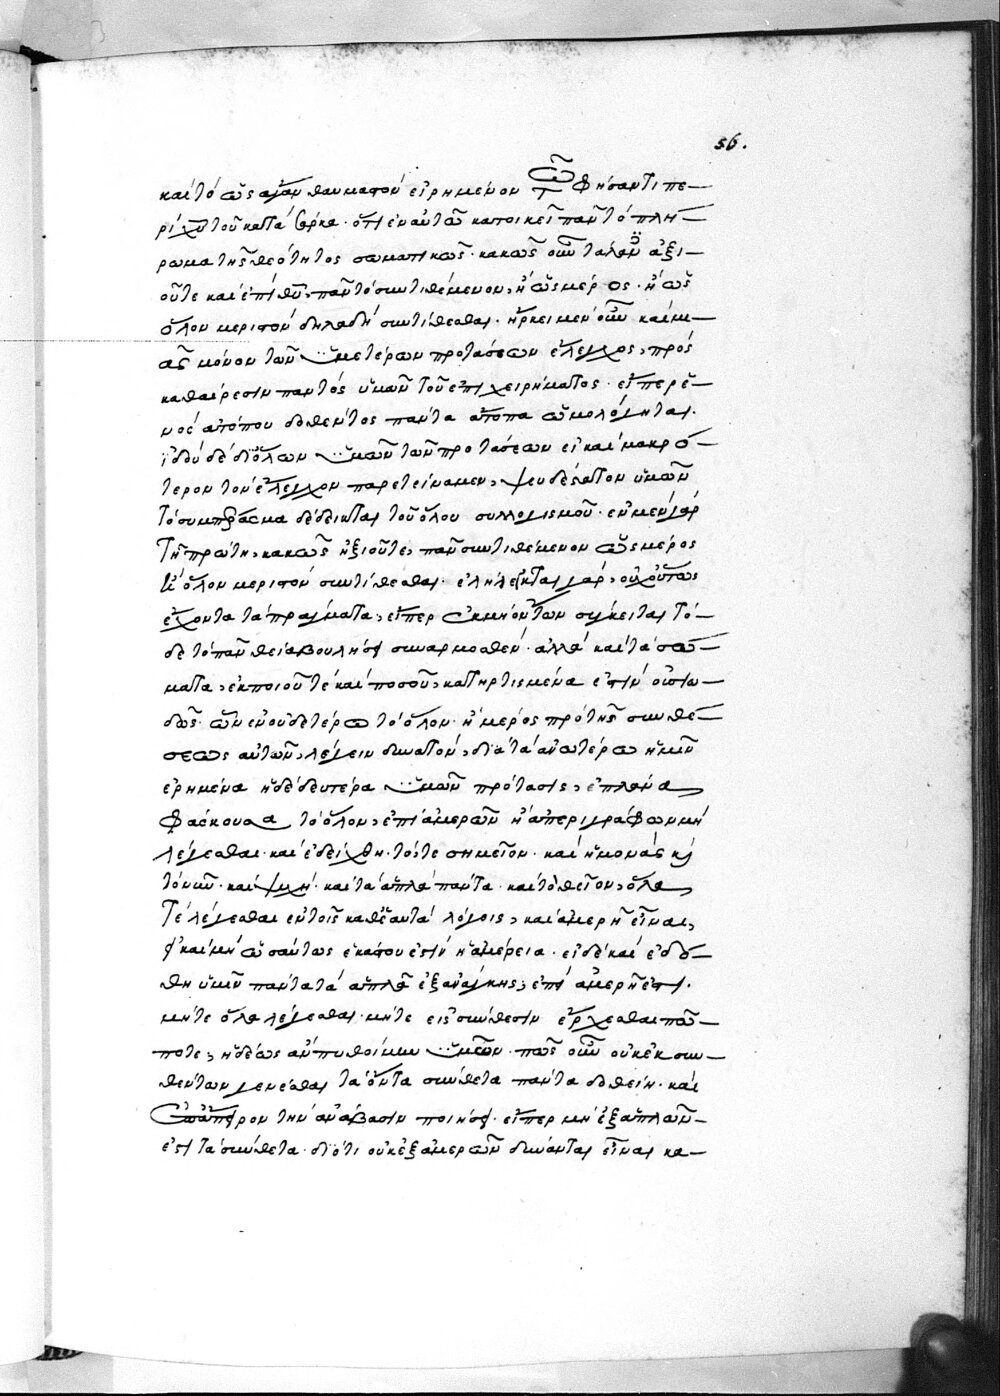 56.
καὶ τὸ ὡς ἄγαν θαυμαστὸν εἰρημένον τῶ φήσαντι πε-
ρὶ χυ τοῦ κατὰ σάρκα· ὅτι ἐν αὐτῶ κατοικεῖ πᾶν τὸ πλή-
ρωμα τῆς θεότητος σωματικῶς· κακῶς οὖν ἀξι-
οῦτε καὶ ἐπὶ θυ, πᾶν τὸ συντιθέμενον, ἢ ὡς μέρος· ἢ ὡς
ὅλον μεριστὸν δηλαδὴ συντίθεσθαι· ἤρκει μὲν οὖν καὶ μι-
ᾶς μόνον τῶν ὑμετέρων προτάσεων ἔλεγχος, πρὸς
καθαίρεσιν παντὸς ὑμῶν τοῦ ἐπιχειρήματος· εἴπερ ἑ-
νὸς ἀτόπου δοθέντος πάντα ἄτοπα ὡμολόγηται·
ἰδοὺ δὲ δι' ὅλων ὑμῶν τῶν προτάσεων εἰ καὶ μακρό-
τερον τὸν ἔλεγχον παρετείναμεν, ψευδέστατον ὑμῶν
τὸ συμπέρασμα δέδεικται τοῦ ὅλου συλλογισμοῦ· ἐν μὲν γὰρ
τῆ πρώτη, κακῶς ἠξιοῦτε, πᾶν συντιθέμενον ὡς μέρος
ἢ ὅλον μεριστὸν συντίθεσθαι· ἐλήλεγκται γὰρ, οὐχ οὕτως
ἔχοντα τὰ πράγματα, εἴπερ ἐκ μὴ ὄντων σύγκειται τό-
δε τὸ πᾶν θεία βουλήσει συναρμοσθέν· ἀλλὰ καὶ τὰ σώ-
ματα, ἐκ ποιοῦ τὲ καὶ ποσοῦ, κατηρτισμένα ἐστὶν οὐσιω-
δῶς· ὧν ἐν οὐδετέρω τὸ ὅλον· ἢ μέρος πρὸ τῆς συνθέ-
σεως αὐτῶν, λέγειν δυνατὸν, διὰ τὰ ἀνωτέρω ἡμῖν
εἰρημένα ἡ δὲ δευτέρα ὑμῶν πρότασις,
φάσκουσα τὸ ὅλον, ἐπὶ ἀμερῶν ἢ ἀπεριγράφων μὴ
λέγεσθαι· καὶ ἐδείχθη· τό, τε σημεῖον· καὶ ἡ μονὰς καὶ
τὸ νῦν· καὶ ψυχή· καὶ τὰ ἁπλᾶ πάντα· καὶ τὸ θεῖον, ὅλα,
τὲ λέγεσθαι ἐν τοῖς καθ' ἑαυτὰ λόγοις, καὶ ἀμερῆ εἶναι,
εἰ καὶ μὴ ὡσαύτως ἑκάστου ἐστὶν ἡ ἀμέρεια· εἰ δὲ καὶ ἐδό-
θη ὑμῖν πάντα τὰ ἁπλᾶ ἐξανάγκης, ἐπεὶ ἀμερῆ ἐστι·
μήτε ὅλα λέγεσθαι· μήτε εἰς σύνθεσιν ἔρχεσθαι πώ-
ποτε, ἡδέως ἂν πυθοίμην ὑμῶν· πῶς οὖν οὐκ ἐκ συν-
θέτων γενέσθαι τὰ ὄντα σύνθετα πάντα δοθείη· καὶ
ἐπ' ἄπειρον τὴν ἀνάβασιν ποιήσει· εἴπερ μὴ ἐξ ἁπλῶν
ἐστι τὰ σύνθετα· διότι οὐκ ἐξ ἀμερῶν δύνανται εἶναι κα-